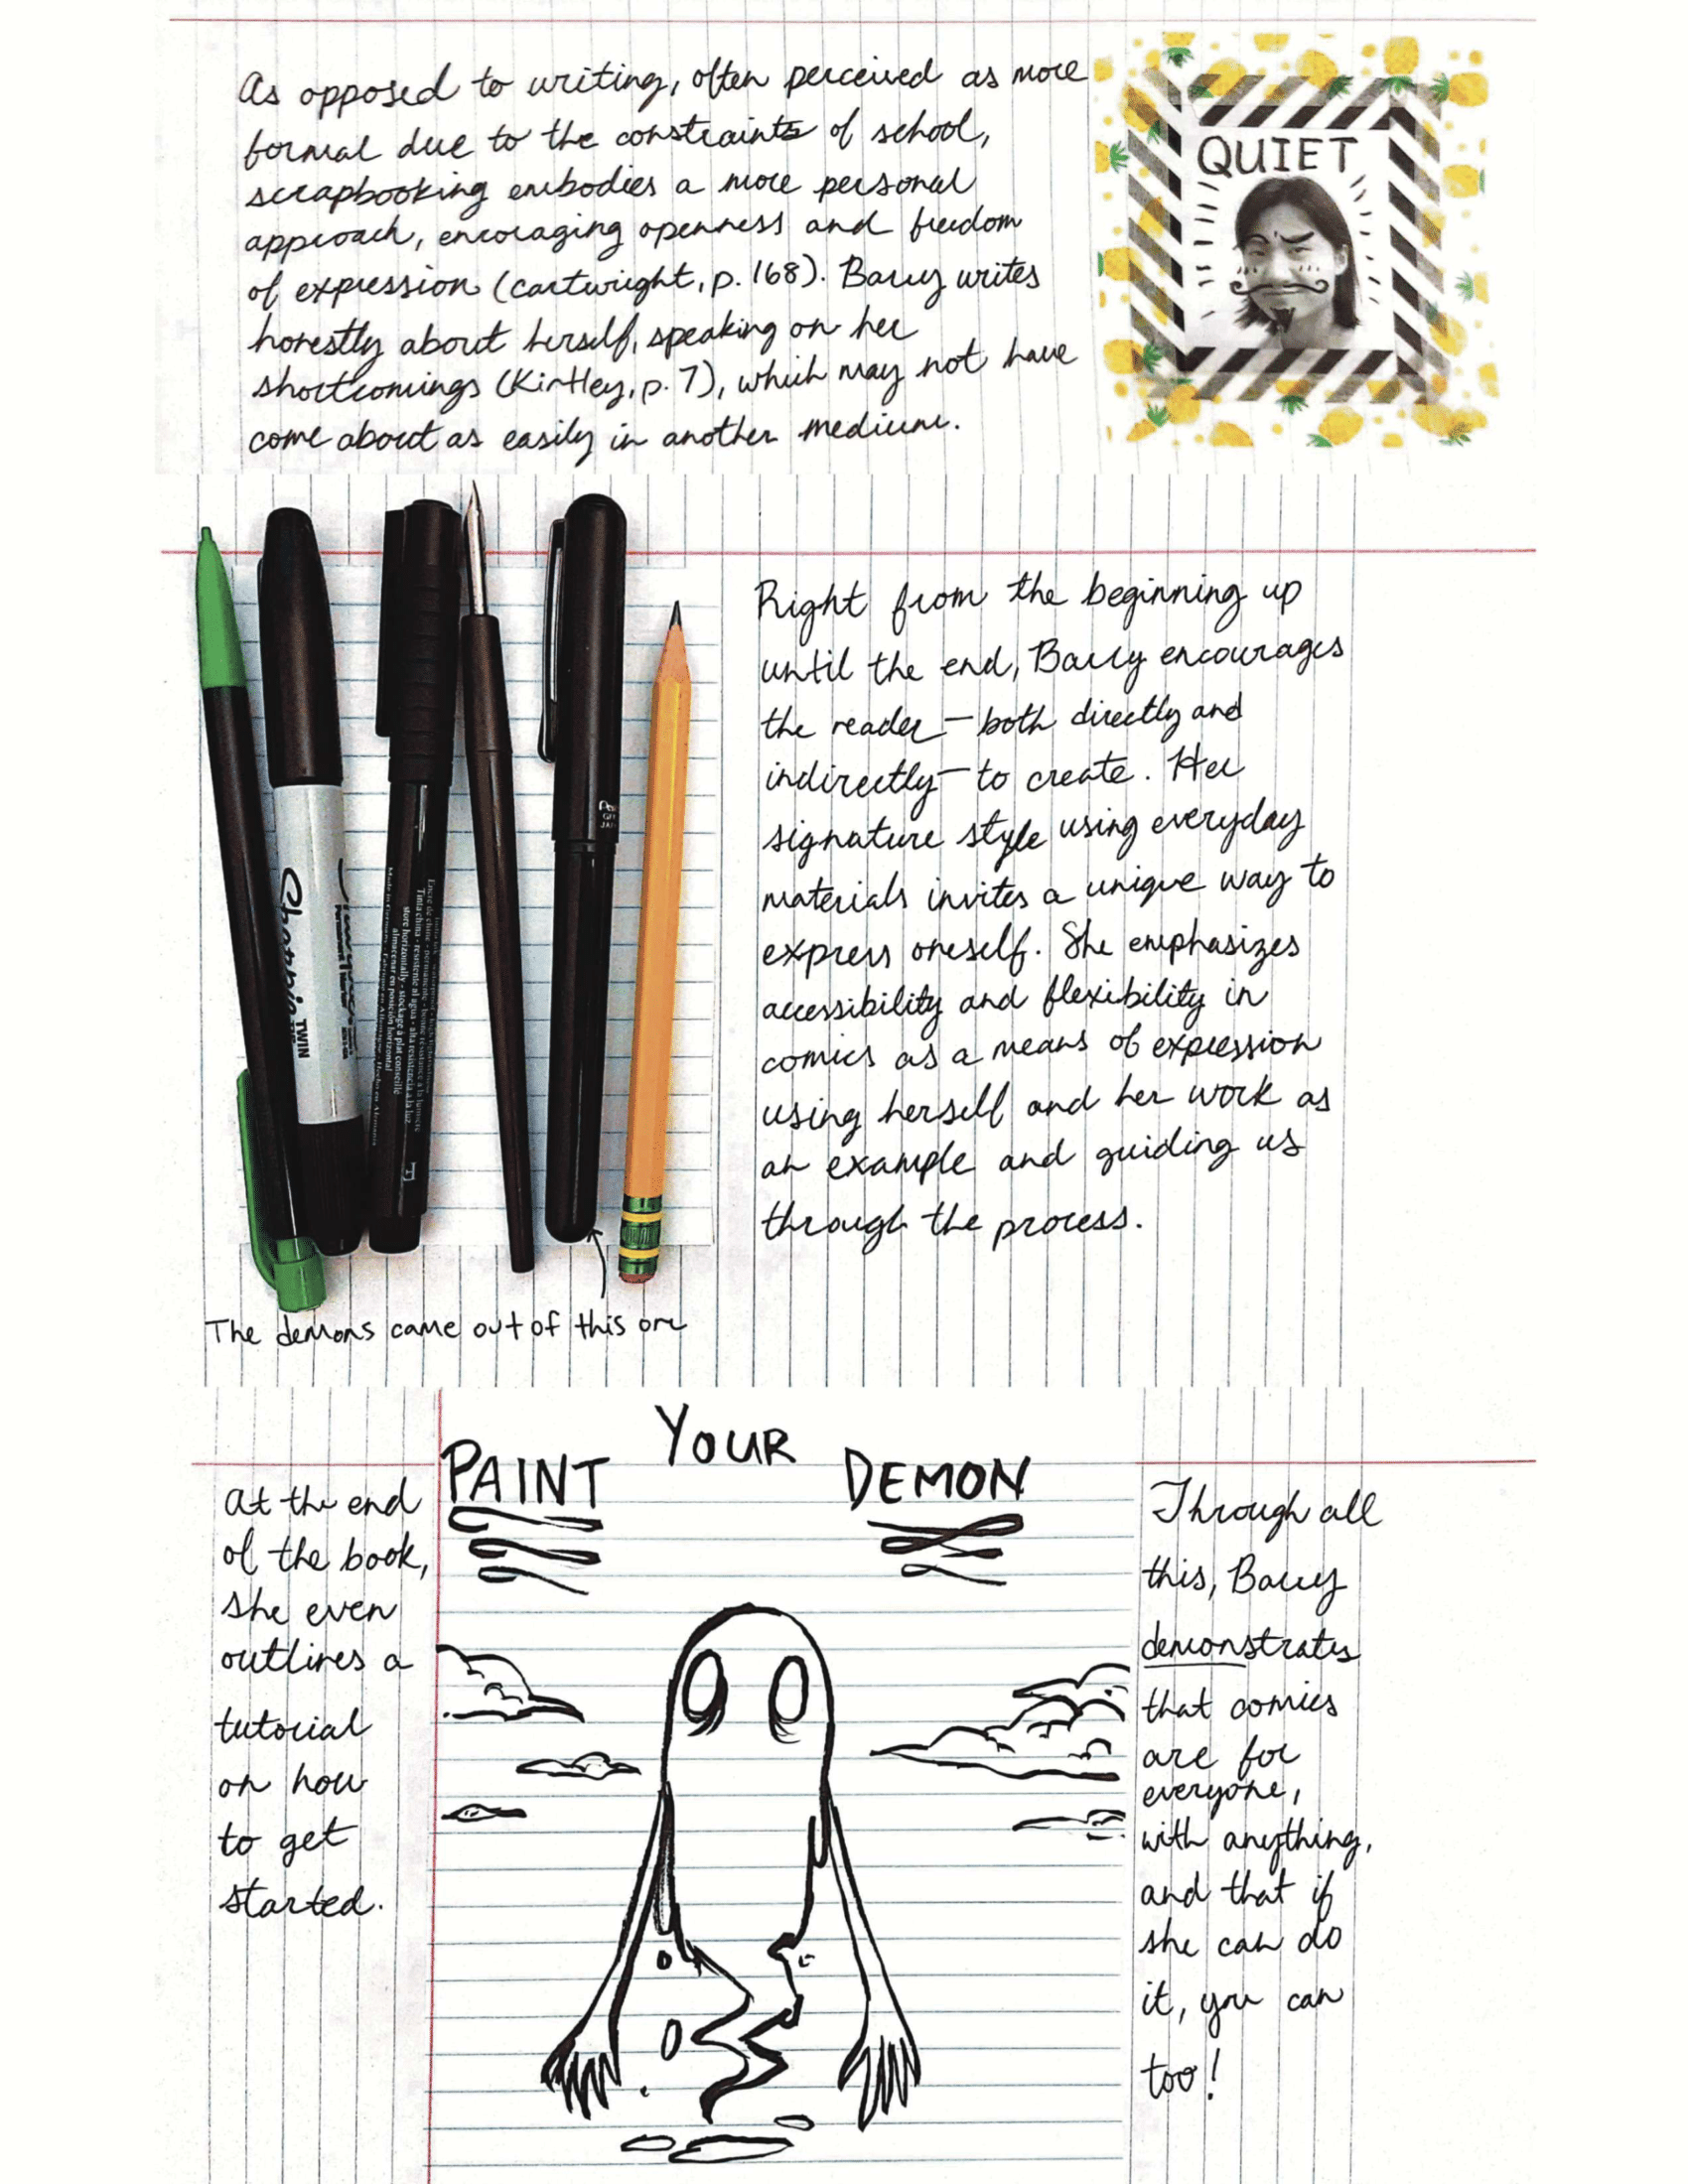 As opposed to writing, often perceived as more
formal due to the constraints of school,
scrapbooking embodies a more personal
approach, encouraging openness and freedom
of expression (Cartwright, p. 168). Barry writes
honestly about herself, speaking on her
shortcomings (Kirtley, p. 7), which may not have
come about as easily in another medium.
QUIET
Right from the beginning up
until the end, Barry encourages
the reader — both directly and
indirectly — to create. Her
signature style using everyday
materials invites a unique way to
express oneself. She emphasizes
accessibility and flexibility in
comics as a means of expression
using herself and her work as
an example and guiding us
through the process.
Sharpie
TWIN
Encre de chine - permanente -
Tinta china - resistente al agua - alta resistencia a la luz
store horizontally - stockage à plat conseillé
almacenar en posición horizontal
The demons came out of this one
PAINT YOUR DEMON
At the end
of the book,
she even
outlines a
tutorial
on how
to get
started.
Through all
this, Barry
demonstrates
that comics
are for
everyone,
with anything,
and that if
she can do
it, you can
too!